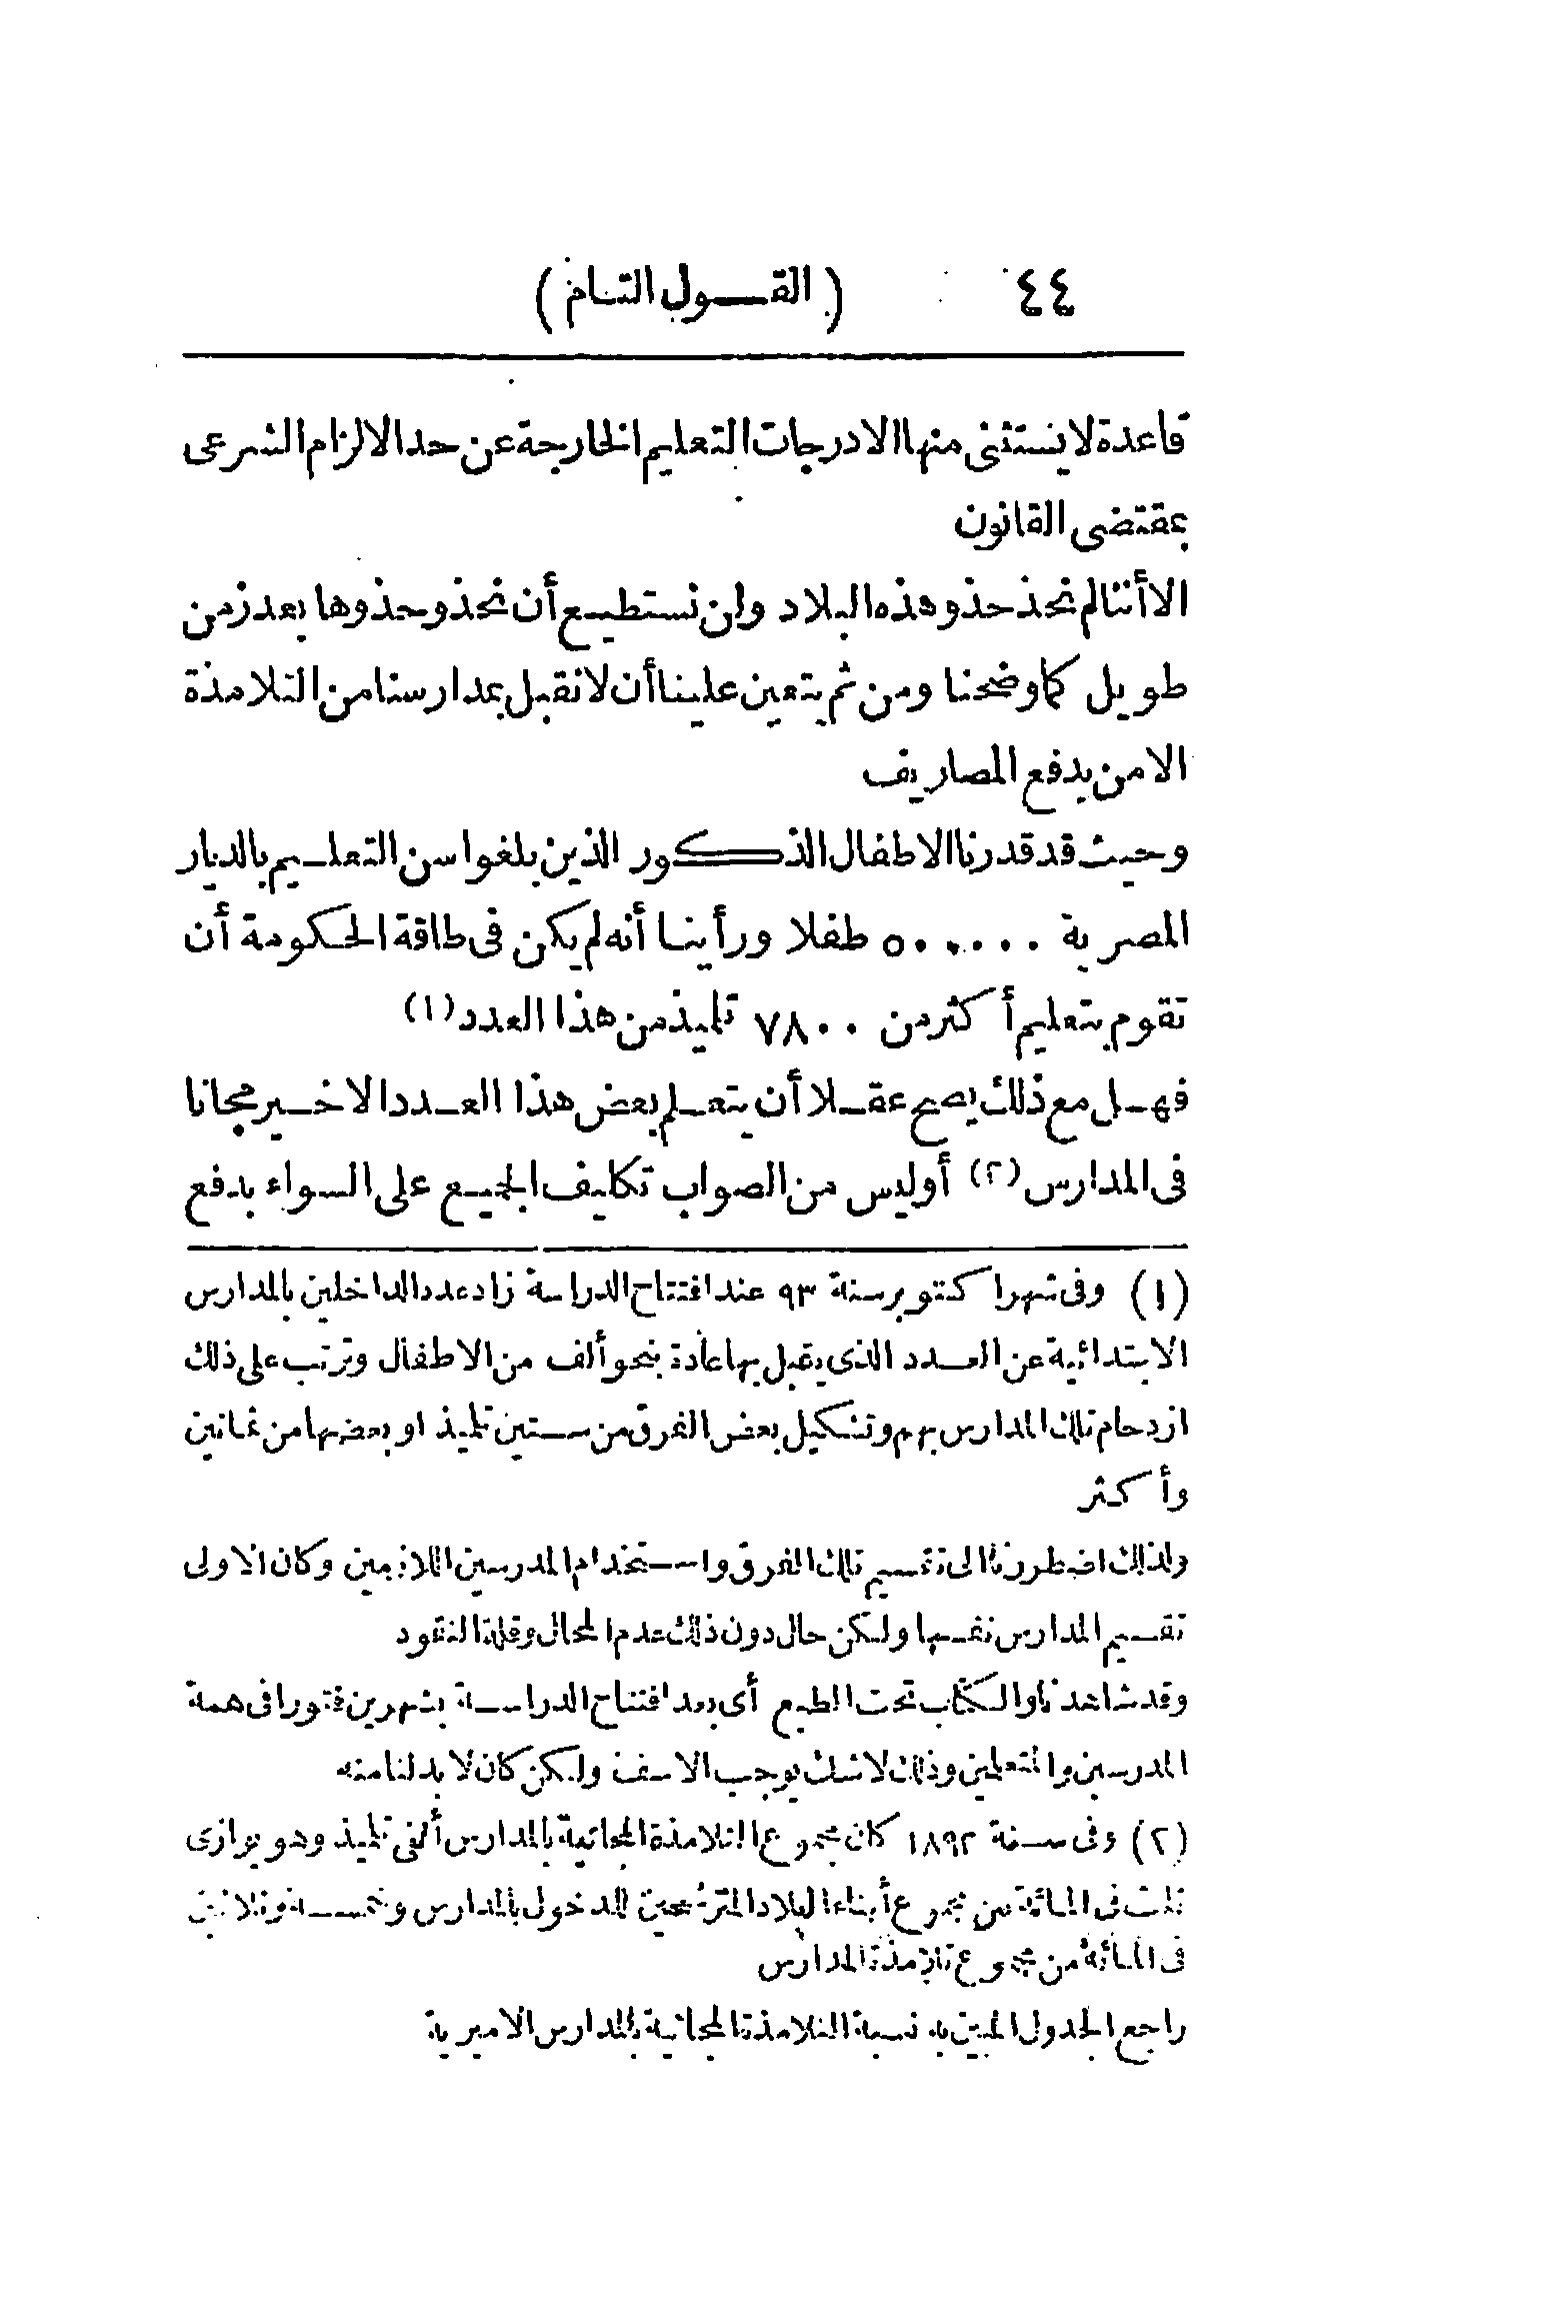 ٤٤ ( القول التام )
قاعدة لا يستثنى منها الا درجات التعليم الخارجة عن حد الالزام الشرعى
بمقتضى القانون
الا أننا لم نحذ حذو هذه البلاد ولن نستطيع أن نحذو حذوها بعد زمن
طويل كما وضحنا ومن ثم يتعين علينا أن لا نقبل بمدارسنا من التلامذة
الا من يدفع المصاريف
وحيث قد قدرنا الاطفال الذكور الذين بلغوا سن التعليم بالديار
المصرية ٥٠٠,٠٠٠ طفلا ورأينا أنه لم يكن فى طاقة الحكومة أن
تقوم بتعليم أكثر من ٧٨٠٠ تلميذ من هذا العدد (١)
فهل مع ذلك يصح عقلا أن يتعلم بعض هذا العدد الاخير مجانا
فى المدارس (٢) أوليس من الصواب تكليف الجميع على السواء بدفع
(١) وفى شهر اكتوبر سنة ٩٣ عند افتتاح الدراسة زاد عدد الداخلين بالمدارس
الابتدائية عن العدد الذى يقبل بها عادة بنحو ألف من الاطفال وترتب على ذلك
ازدحام تلك المدارس بهم وتشكيل بعض الفرق من ستين تلميذ او بعضها من ثمانين
وأكثر
ولذلك اضطررنا الى تقسيم تلك الفرق واستخدام المدرسين اللازمين وكان الاولى
تقسيم المدارس نفسها ولكن حال دون ذلك عدم المحال وقلة النقود
وقد شاهدنا والكتاب تحت الطبع أى بعد افتتاح الدراسة بشهرين فتورا فى همة
المدرسين والمتعلمين وذلك لا شك يوجب الاسف ولكن كان لا بد لنا منه
(٢) وفى سنة ١٨٩٢ كان مجموع التلامذة المجانية بالمدارس ألفى تلميذ وهو يوازى
ثلث فى المائة من مجموع أبناء البلاد المترشحين للدخول بالمدارس وخمسة وثلاثين
فى المائة من مجموع تلامذة المدارس
راجع الجدول المبين به نسبة التلامذة المجانية بالمدارس الاميرية